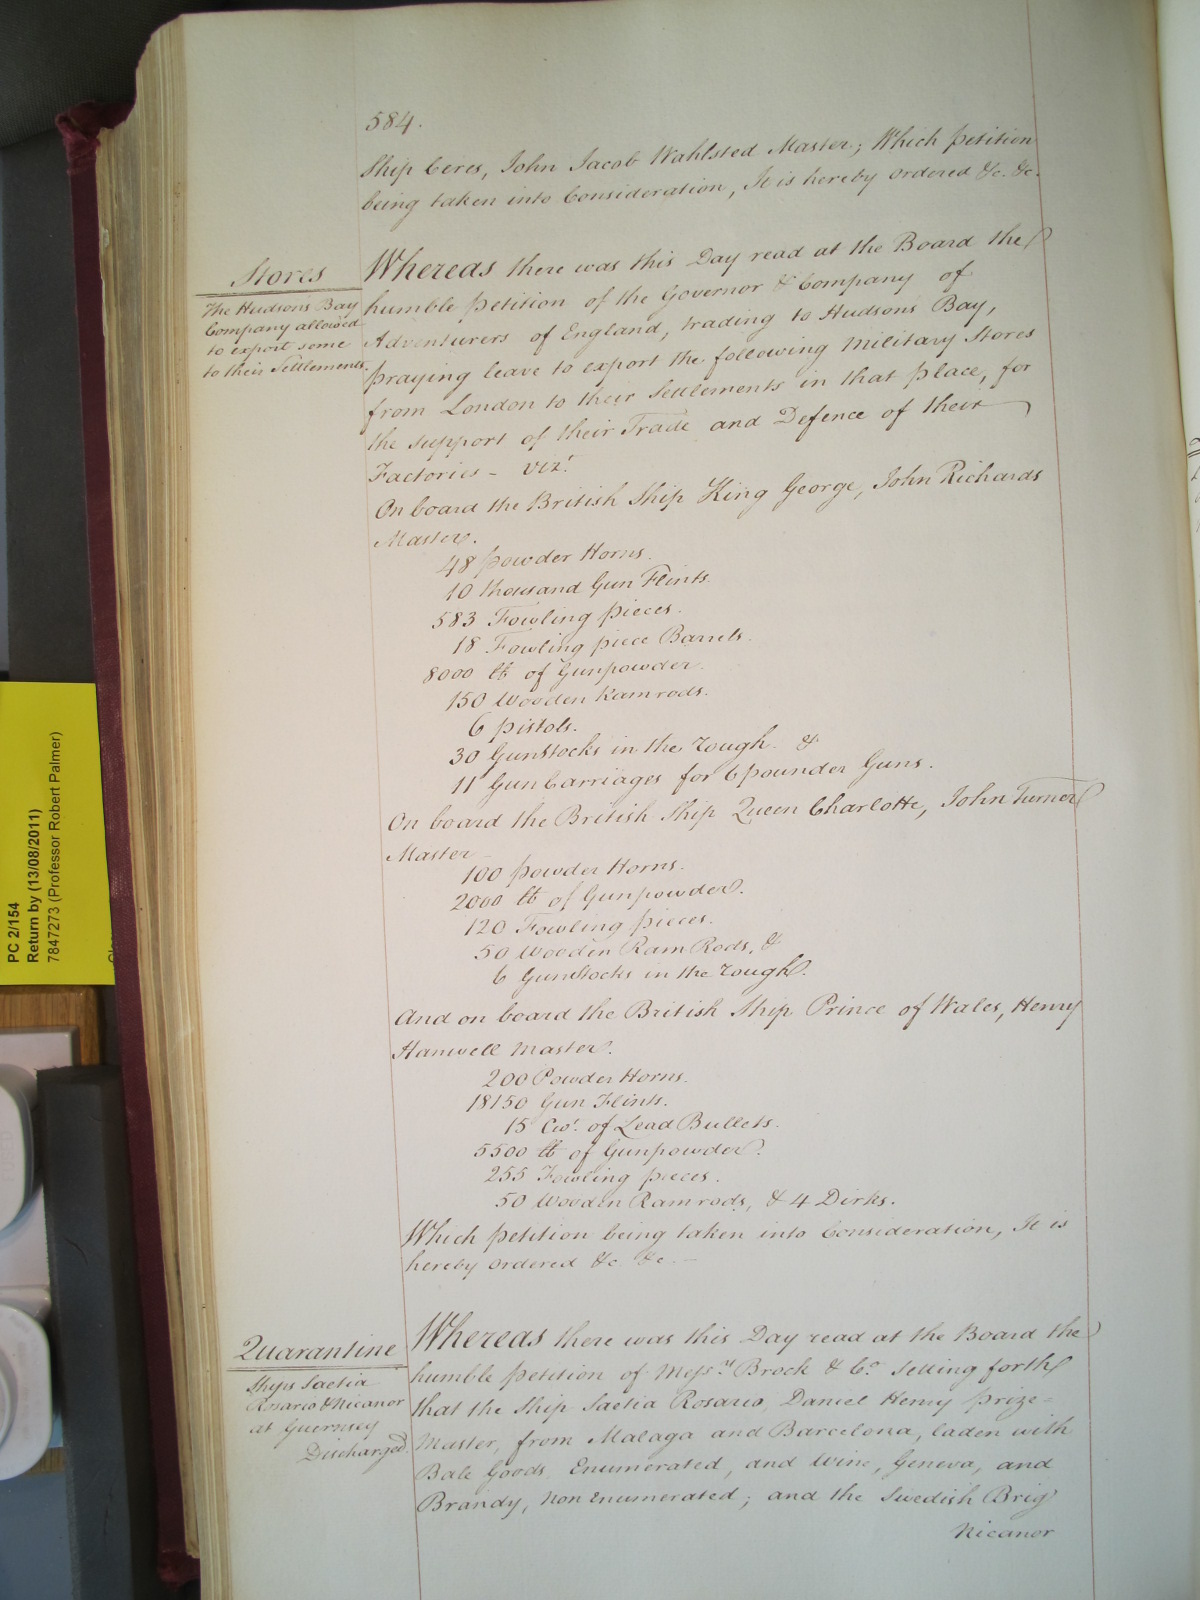 584.
Ship Ceres, John Jacob Wahlsted Master; Which petition
being taken into Consideration, It is hereby ordered &c. &c.
Stores
The Hudsons Bay
Company allowed
to export some
to their Settlements.
Whereas there was this Day read at the Board the
humble petition of the Governor & Company of
Adventurers of England, trading to Hudsons Bay,
praying leave to export the following Military Stores
from London to their Settlements in that place, for
the support of their Trade and Defence of their
Factories - vizt.
On board the British Ship King George, John Richards
Master.
48 powder Horns.
10 thousand Gun Flints.
583 Fowling pieces.
18 Fowling piece Barrels.
8000 lb of Gunpowder.
150 Wooden Ramrods.
6 pistols.
30 Gunstocks in the rough. &
11 Gun Carriages for 6 pounder Guns.
On board the British Ship Queen Charlotte, John Turner
Master
100 powder Horns.
2000 lb of Gunpowder.
120 Fowling pieces.
50 Wooden Ram Rods, &
6 Gunstocks in the rough.
And on board the British Ship Prince of Wales, Henry
Hanwell Master.
200 Powder Horns.
18150 Gun Flints.
15 Cwt. of Lead Bullets.
5500 lb of Gunpowder.
255 Fowling pieces.
50 Wooden Ramrods, & 4 Dirks.
Which petition being taken into Consideration, It is
hereby ordered &c &c -
Quarantine
Ships Saetia
Rosario & Nicanor
at Guernsey
Discharged.
Whereas there was this Day read at the Board the
humble petition of Messrs. Brock & Co. Setting forth
that the Ship Saetia Rosario, Daniel Henry prize=
Master, from Malaga and Barcelona, laden with
Bale Goods Enumerated, and Wine, Geneva, and
Brandy, non enumerated; and the Swedish Brig
Nicanor
PC 2/154
Return by (13/08/2011)
7847273 (Professor Robert Palmer)